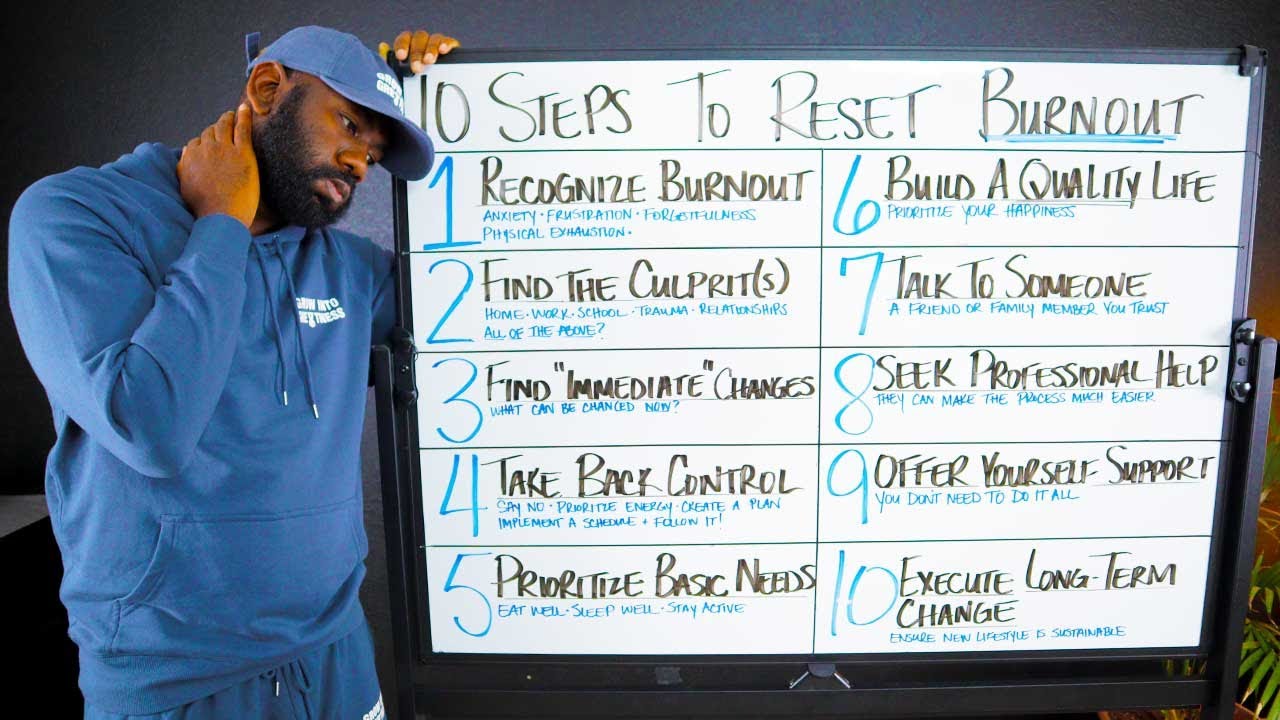 10 STEPS TO RESET BURNOUT
1 RECOGNIZE BURNOUT
ANXIETY · FRUSTRATION · FORGETFULNESS
PHYSICAL EXHAUSTION ·
2 FIND THE CULPRIT(S)
HOME · WORK · SCHOOL · TRAUMA · RELATIONSHIPS
ALL OF THE ABOVE?
3 FIND "IMMEDIATE" CHANGES
WHAT CAN BE CHANGED NOW?
4 TAKE BACK CONTROL
SAY NO · PRIORITIZE ENERGY · CREATE A PLAN
IMPLEMENT A SCHEDULE + FOLLOW IT!
5 PRIORITIZE BASIC NEEDS
EAT WELL · SLEEP WELL · STAY ACTIVE
6 BUILD A QUALITY LIFE
PRIORITIZE YOUR HAPPINESS
7 TALK TO SOMEONE
A FRIEND OR FAMILY MEMBER YOU TRUST
8 SEEK PROFESSIONAL HELP
THEY CAN MAKE THE PROCESS MUCH EASIER
9 OFFER YOURSELF SUPPORT
YOU DON'T NEED TO DO IT ALL
10 EXECUTE LONG-TERM
CHANGE
ENSURE NEW LIFESTYLE IS SUSTAINABLE
GROW INTO